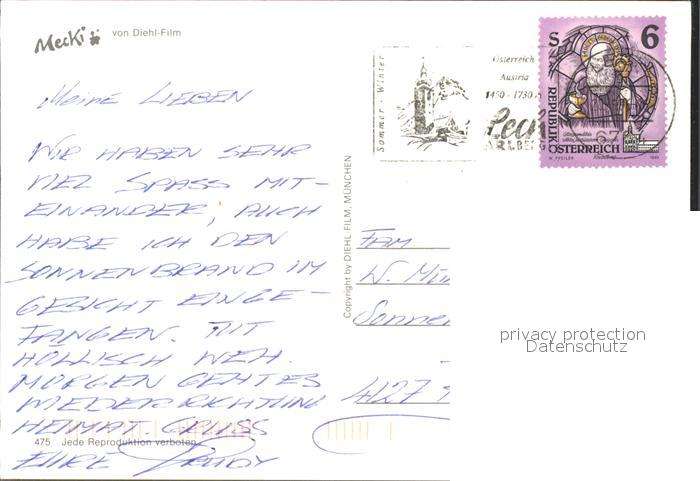 Mecki von Diehl-Film
Meine LIEBEN
WIR HABEN SEHR
VIEL SPASS MIT-
EINANDER, AUCH
HABE ICH DEN
SONNENBRAND IM
GESICHT EINGE-
FANGEN. TUT
HÖLLISCH WEH.
MORGEN GEHTES
WIEDER RICHTUNG
HEIMAT. GRUSS
EURE TRUDY
475 Jede Reproduktion verboten
Copyright by DIEHL-FILM, MÜNCHEN
Sommer · Winter
Österreich
Austria
1450 - 1730
Lech
ARLBERG
S 6
REPUBLIK
ÖSTERREICH
FAM
W. Mü
Sonne
4127
privacy protection
Datenschutz